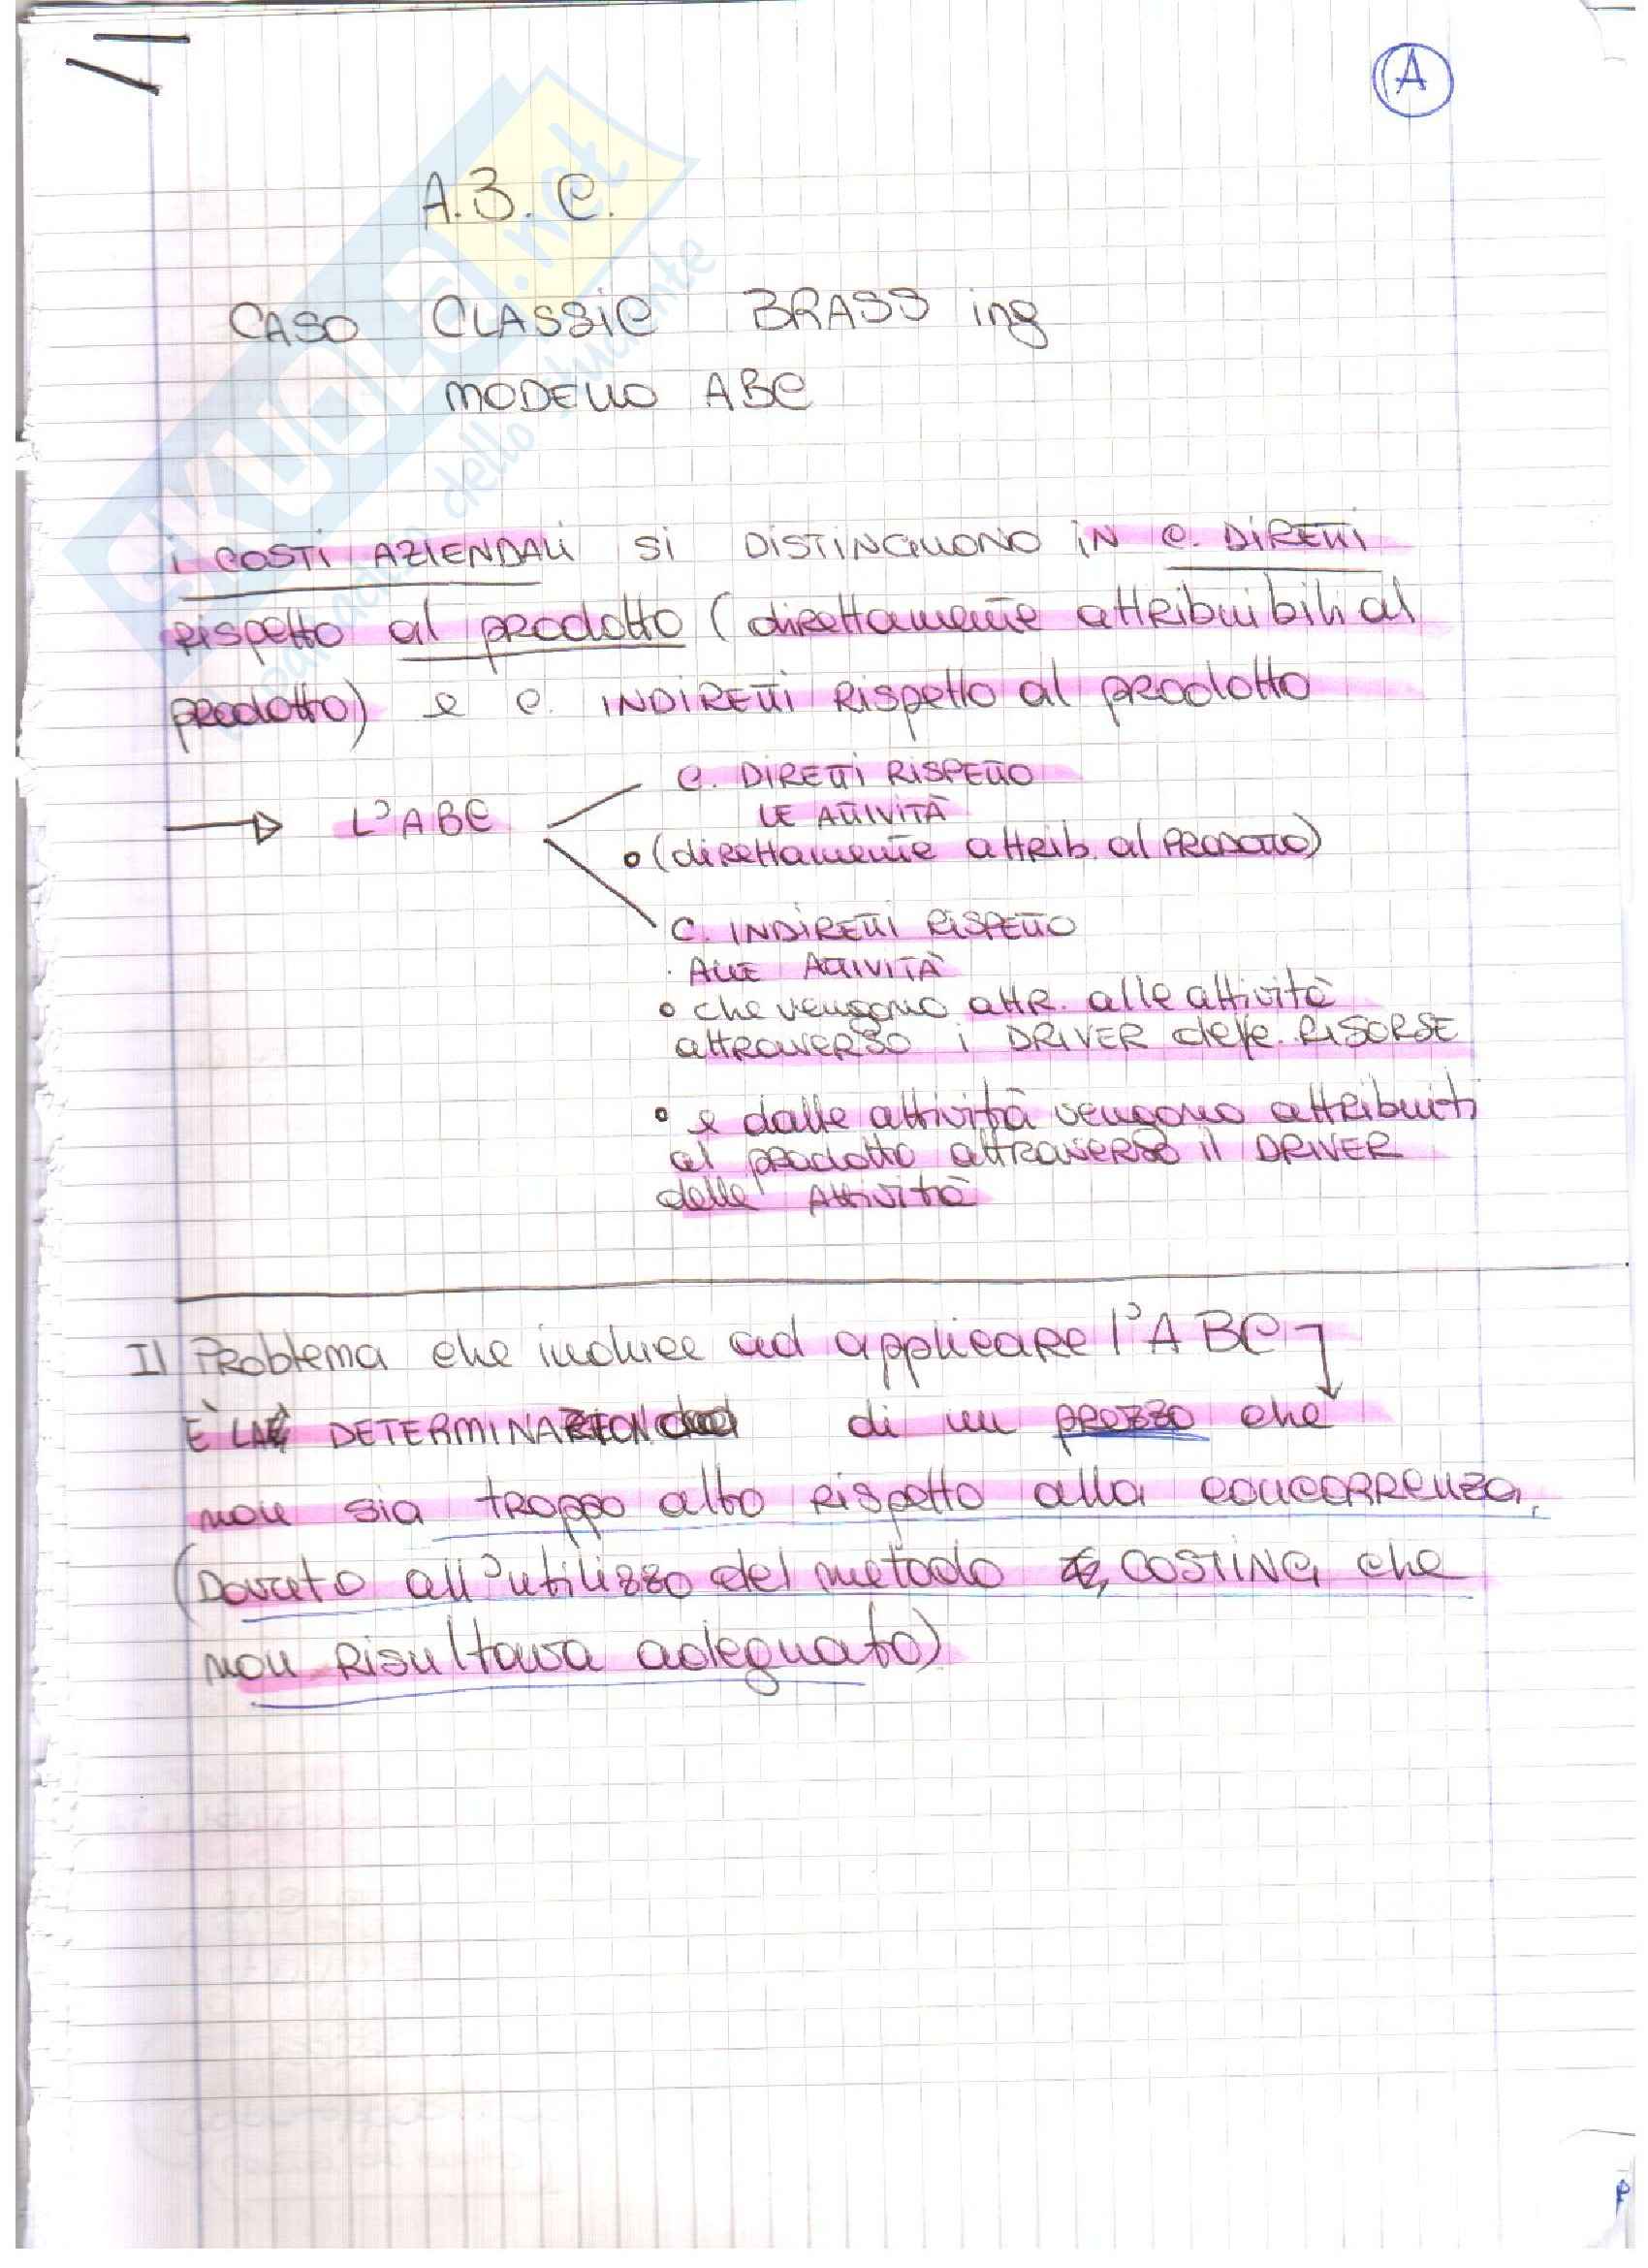 A
A.B.C.
CASO CLASSIC BRASS ing
MODELLO ABC
i COSTI AZIENDALI SI DISTINGUONO IN C. DIRETTI
rispetto al prodotto (direttamente attribuibili al
prodotto) e C. INDIRETTI Rispetto al prodotto
C. DIRETTI RISPETTO
L'ABC
LE ATTIVITÀ
(direttamente attrib. al PRODOTTO)
C. INDIRETTI RISPETTO
ALLE ATTIVITÀ
che vengono attr. alle attività
attraverso i DRIVER delle RISORSE
e dalle attività vengono attribuiti
al prodotto attraverso il DRIVER
delle Attività
Il Problema che induce ad applicare l'ABC
È LA DETERMINAZION di un prezzo che
non sia troppo alto rispetto alla concorrenza.
(Dovuto all'utilizzo del metodo COSTING che
non risultava adeguato)